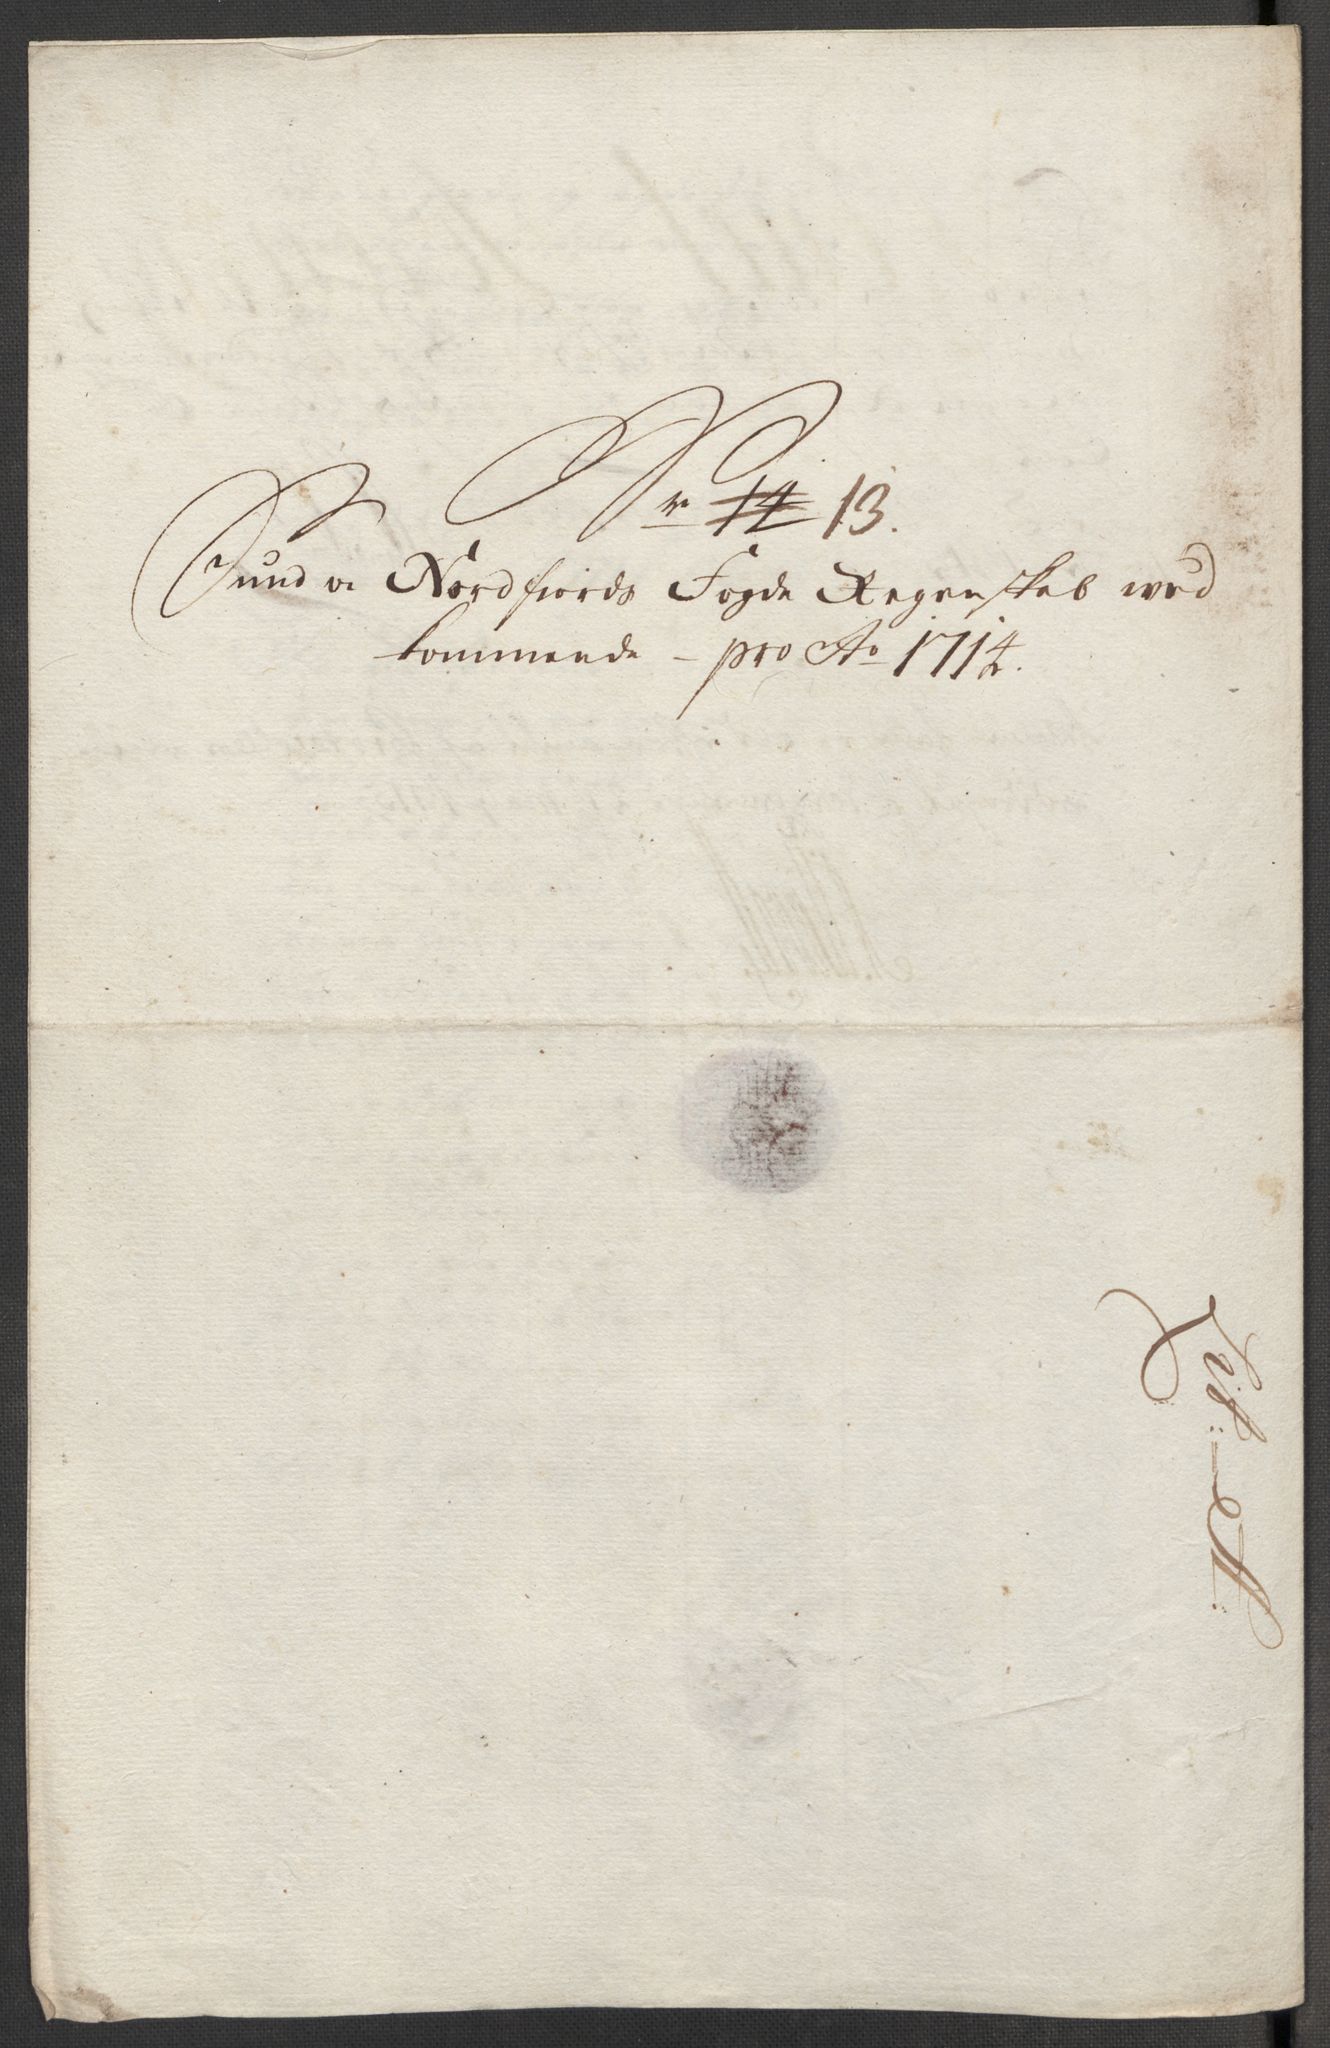 Nr 14 13.
Sund oc Nordfiords Fogde Regenskab wed
kommende - pro Ao 1714.
Lit: A: